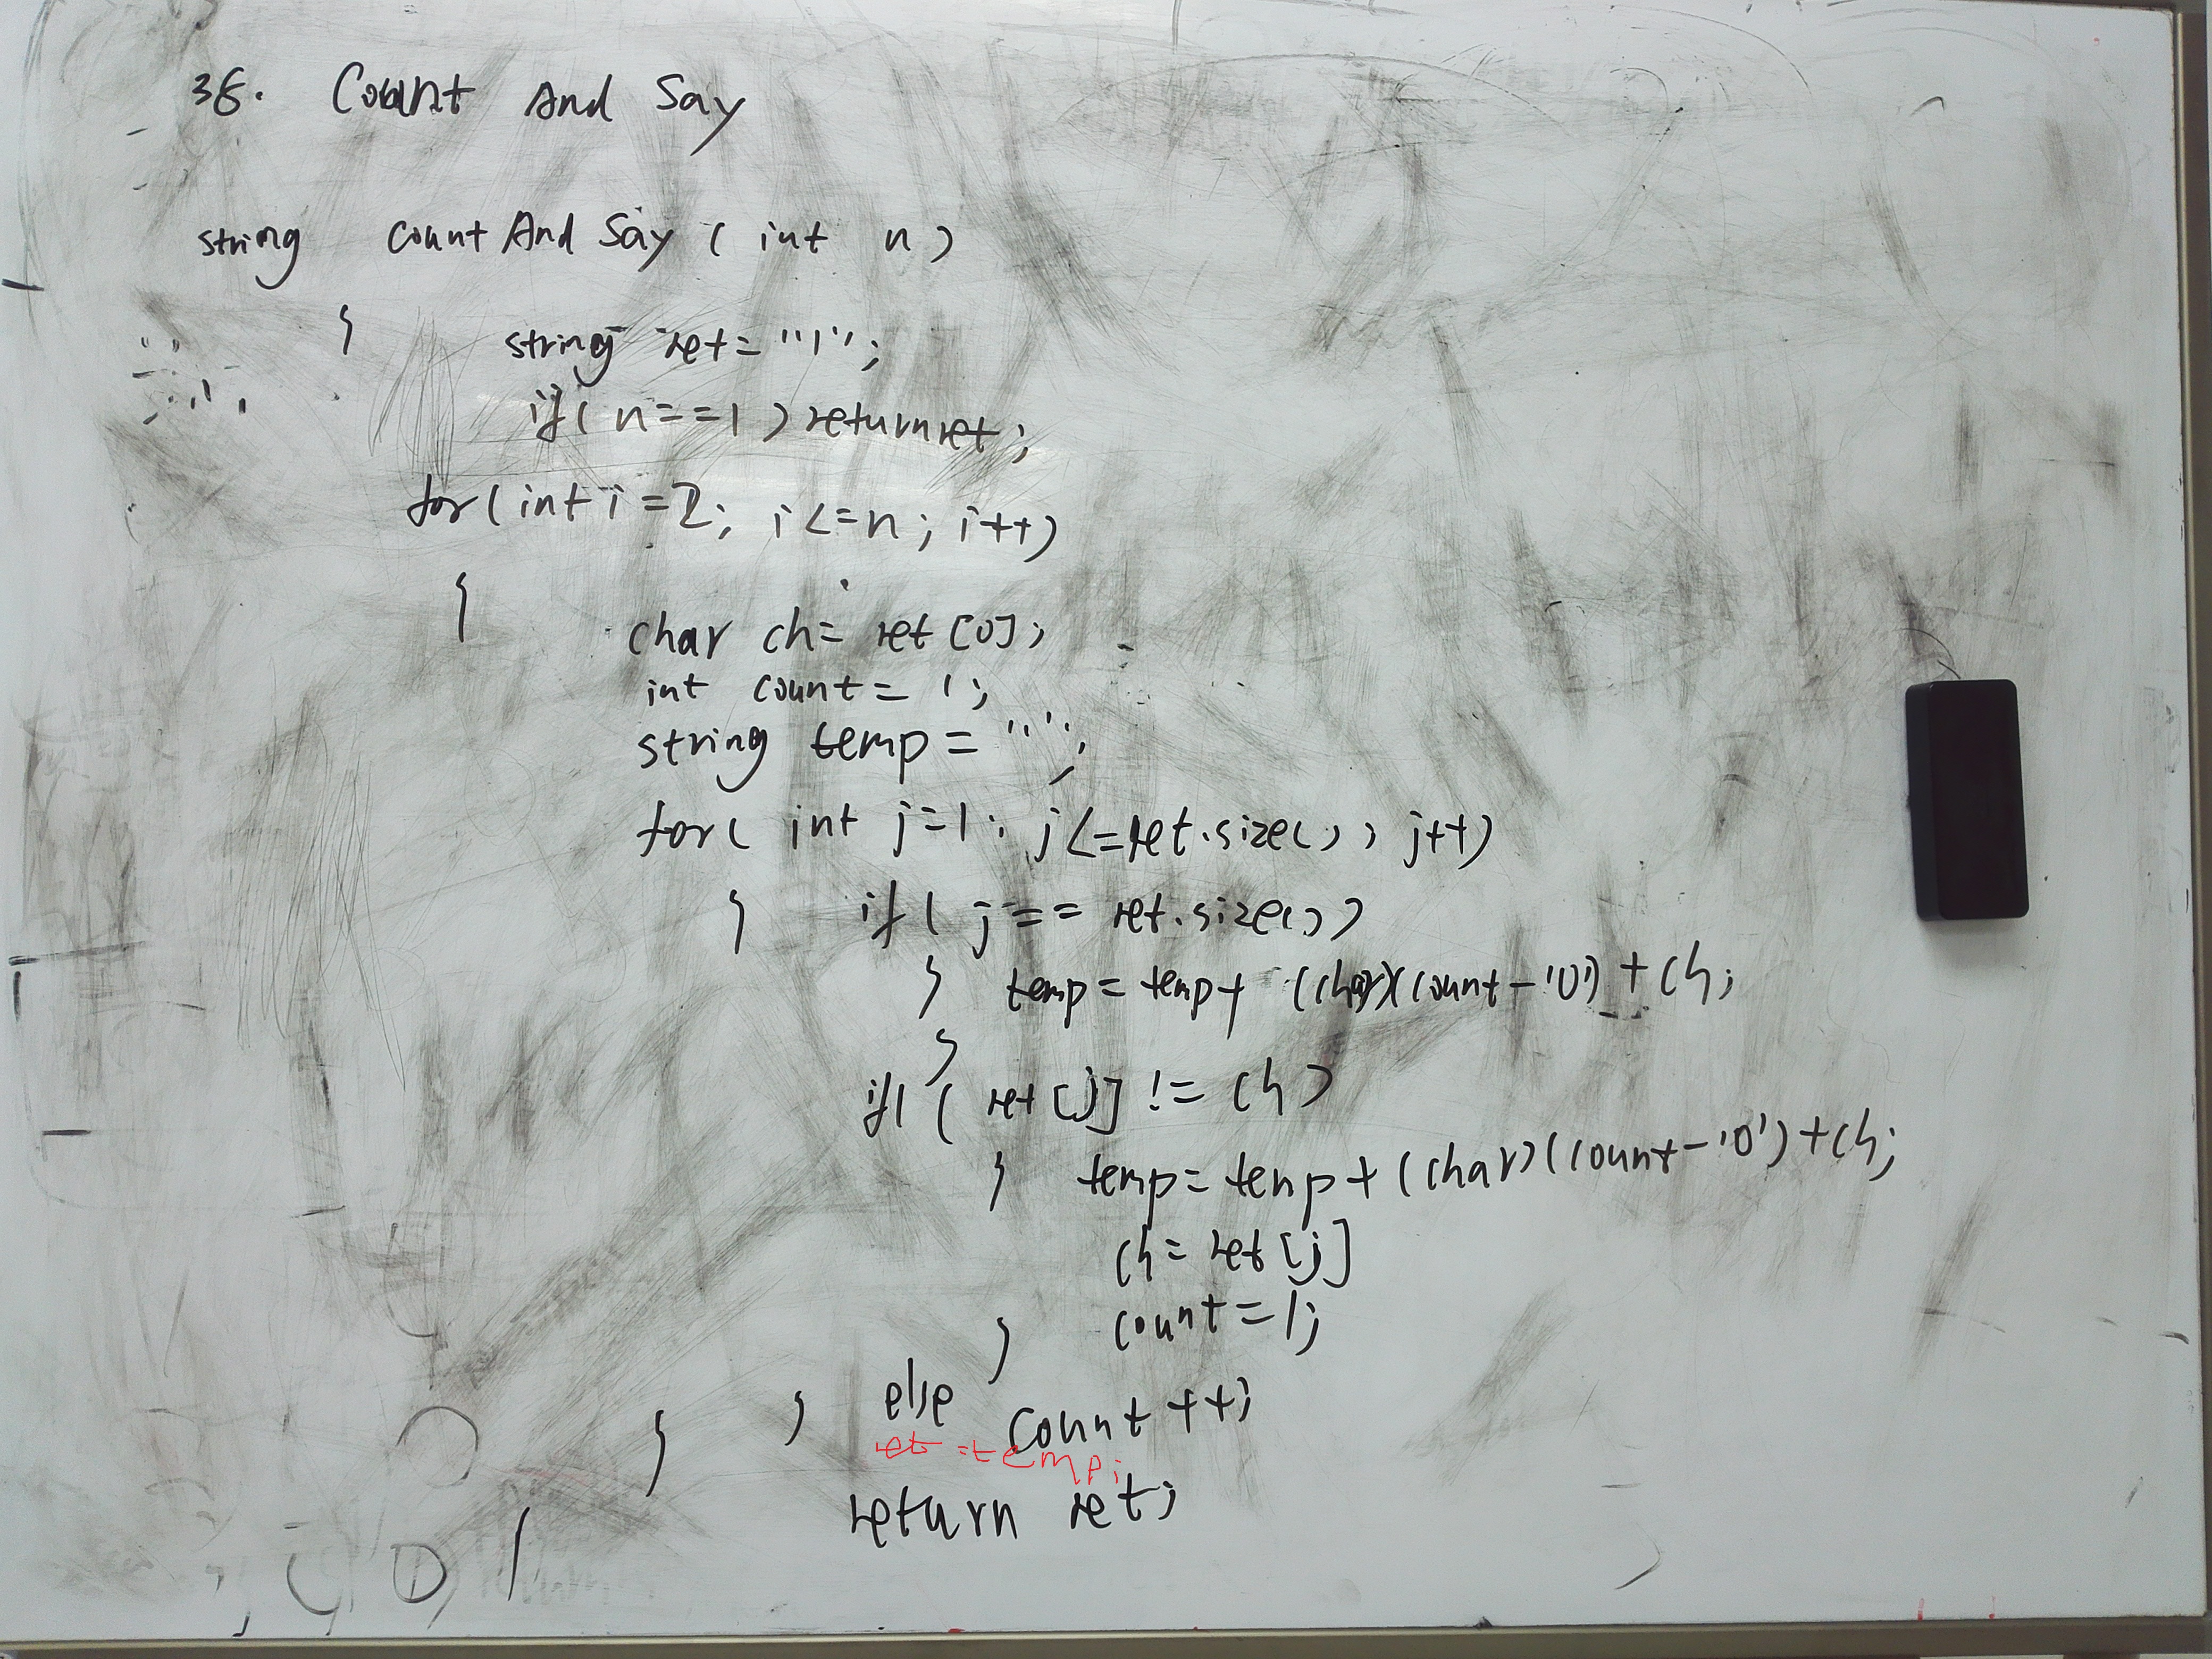 38. Count And Say
string countAndSay ( int n )
{ string ret = "1";
if( n==1 ) return ret;
for( int i=2; i<=n; i++)
{
char ch= ret[0];
int count = 1;
string temp = "";
for( int j=1; j<=ret.size(); j++)
{ if( j == ret.size())
{ temp = temp + (char)(count-'0') + ch;
}
if( ret[j] != ch )
{ temp= temp + (char)(count-'0')+ch;
ch= ret[j]
count=1;
}
} else count ++;
} ret =temp;
return ret;
}